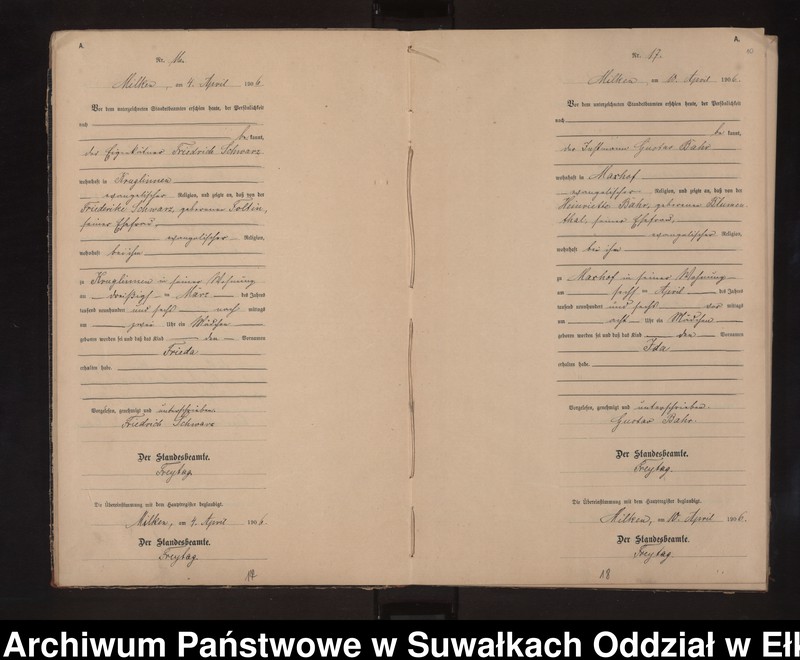 A.
Nr. 16.
Milken, am 4. April 1906.
Vor dem unterzeichneten Standesbeamten erschien heute, der Persönlichkeit
nach
be kannt,
der Eigenkätner Friedrich Schwarz
wohnhaft in Kraglinnen
evangelischer Religion, und zeigte an, daß von der
Friederike Schwarz, geborenen Foltin,
seiner Ehefrau,
evangelischer Religion,
wohnhaft bei ihm
zu Kraglinnen in seiner Wohnung
am dreißigsten März des Jahres
tausend neunhundert und sechs nach mittags
um zwei Uhr ein Mädchen
geboren worden sei und daß das Kind den Vornamen
Frieda
erhalten habe.
Vorgelesen, genehmigt und unterschrieben.
Friedrich Schwarz
Der Standesbeamte.
Freytag.
Die Übereinstimmung mit dem Hauptregister beglaubigt.
Milken, am 4. April 1906.
Der Standesbeamte.
Freytag.
17
A.
Nr. 17.
Milken, am 10. April 1906.
Vor dem unterzeichneten Standesbeamten erschien heute, der Persönlichkeit
nach
be kannt,
der Instmann Gustav Bahr
wohnhaft in Marhof
evangelischer Religion, und zeigte an, daß von der
Henriette Bahr, geborenen Blumen
thal, seiner Ehefrau,
evangelischer Religion,
wohnhaft bei ihm
zu Marhof in seiner Wohnung
am sechsten April des Jahres
tausend neunhundert und sechs vor mittags
um acht Uhr ein Mädchen
geboren worden sei und daß das Kind den Vornamen
Ida
erhalten habe.
Vorgelesen, genehmigt und unterschrieben.
Gustav Bahr.
Der Standesbeamte.
Freytag.
Die Übereinstimmung mit dem Hauptregister beglaubigt.
Milken, am 10. April 1906.
Der Standesbeamte.
Freytag.
18
Archiwum Państwowe w Suwałkach Oddział w Ełk